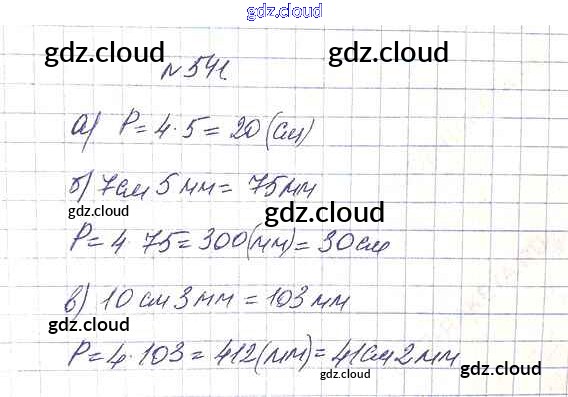 gdz.cloud
gdz.cloud gdz.cloud
№541.
а) P = 4 · 5 = 20 (см)
gdz.cloud
б) 7см 5мм = 75мм
gdz.cloud
gdz.cloud
P = 4 · 75 = 300 (мм) = 30 см
в) 10 см 3 мм = 103 мм
gdz.cloud
gdz.cloud
P = 4 · 103 = 412 (мм) = 41см 2 мм
gdz.cloud
gdz.cloud